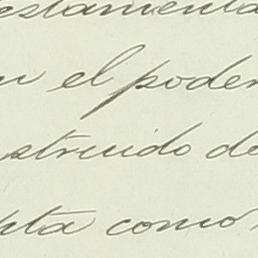 estamenta
n el poder
struido de
pta como